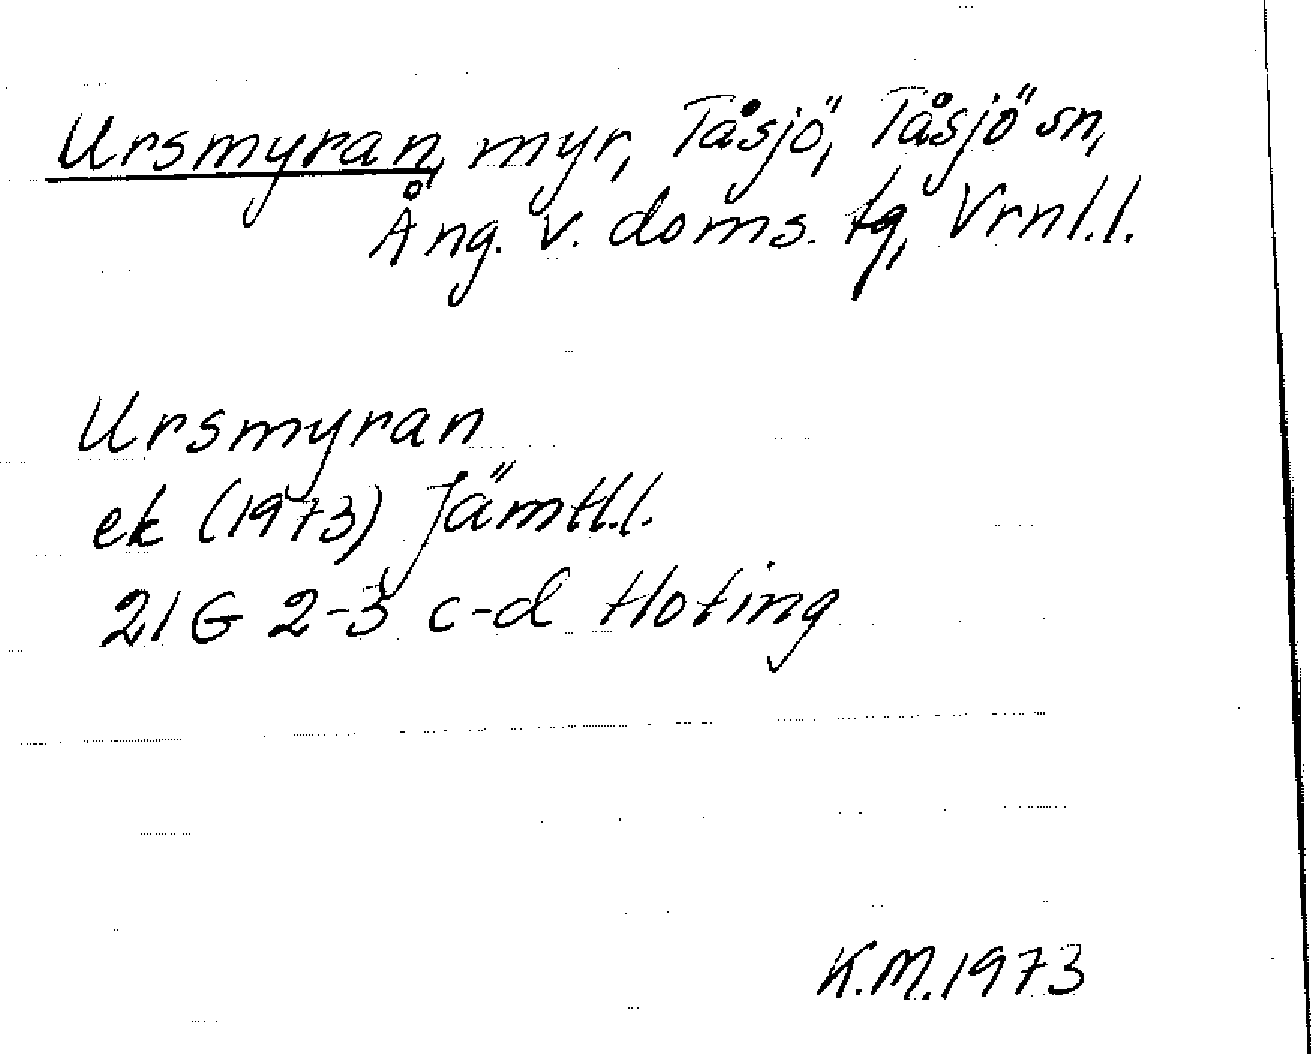 Ursmyran, myr, Tåsjö, Tåsjö sn,
Ång. v. doms. tg, Vrnl.l.
Ursmyran
ek (1973) Jämtl.l.
21 G 2-3 c-d Hoting
K.M. 1973